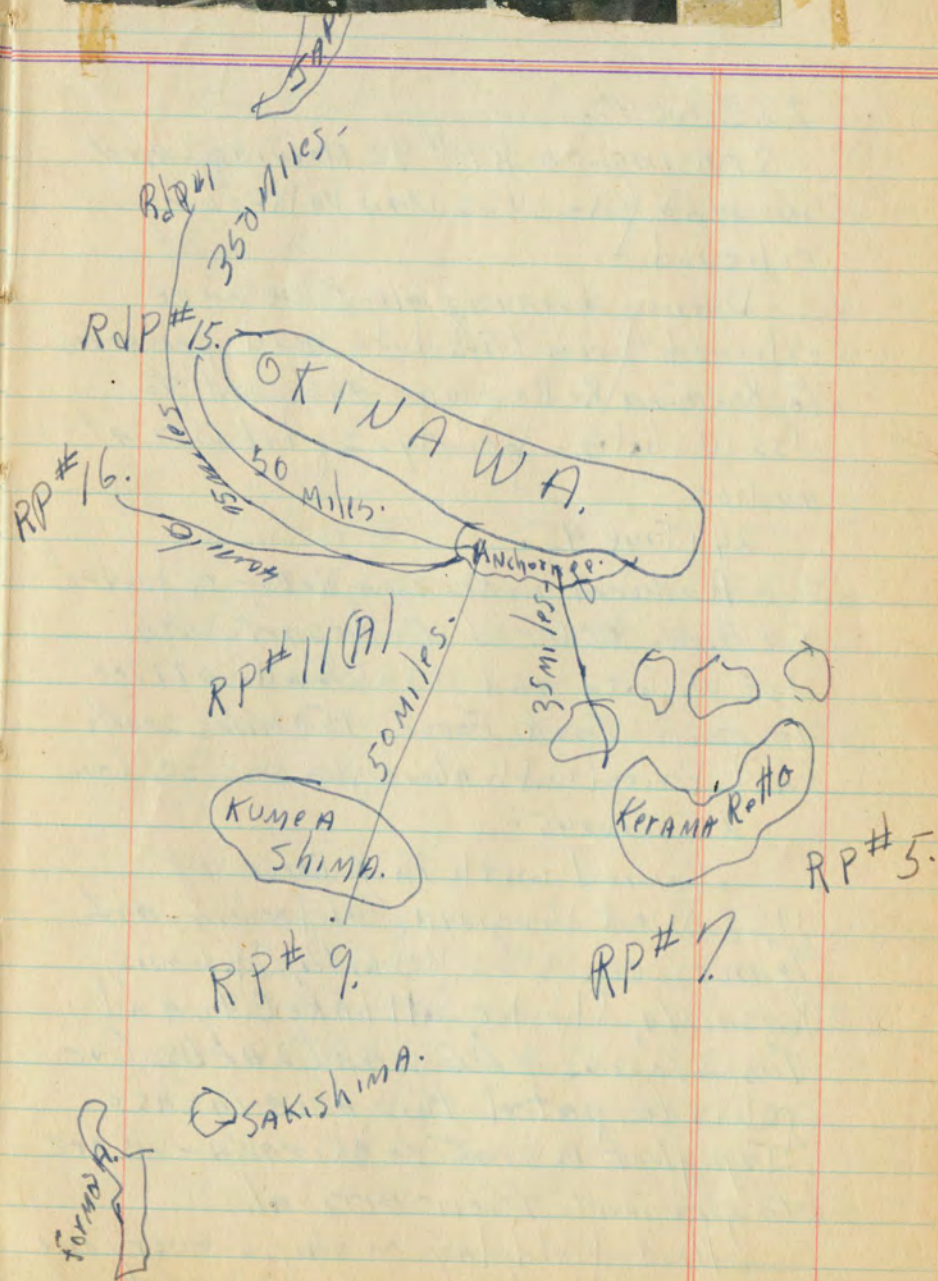 JAP
RdP#1
350 Miles-
RdP#15.
OKINAWA.
50
Miles.
75 miles
RP#16.
40 miles
Anchorage.
RP#11(A)
50 Miles.
35 Miles-
KUMEA
ShimA.
KerAMA Retto
RP#5.
RP#9.
RP#7.
SAKIshimA.
FormosA.